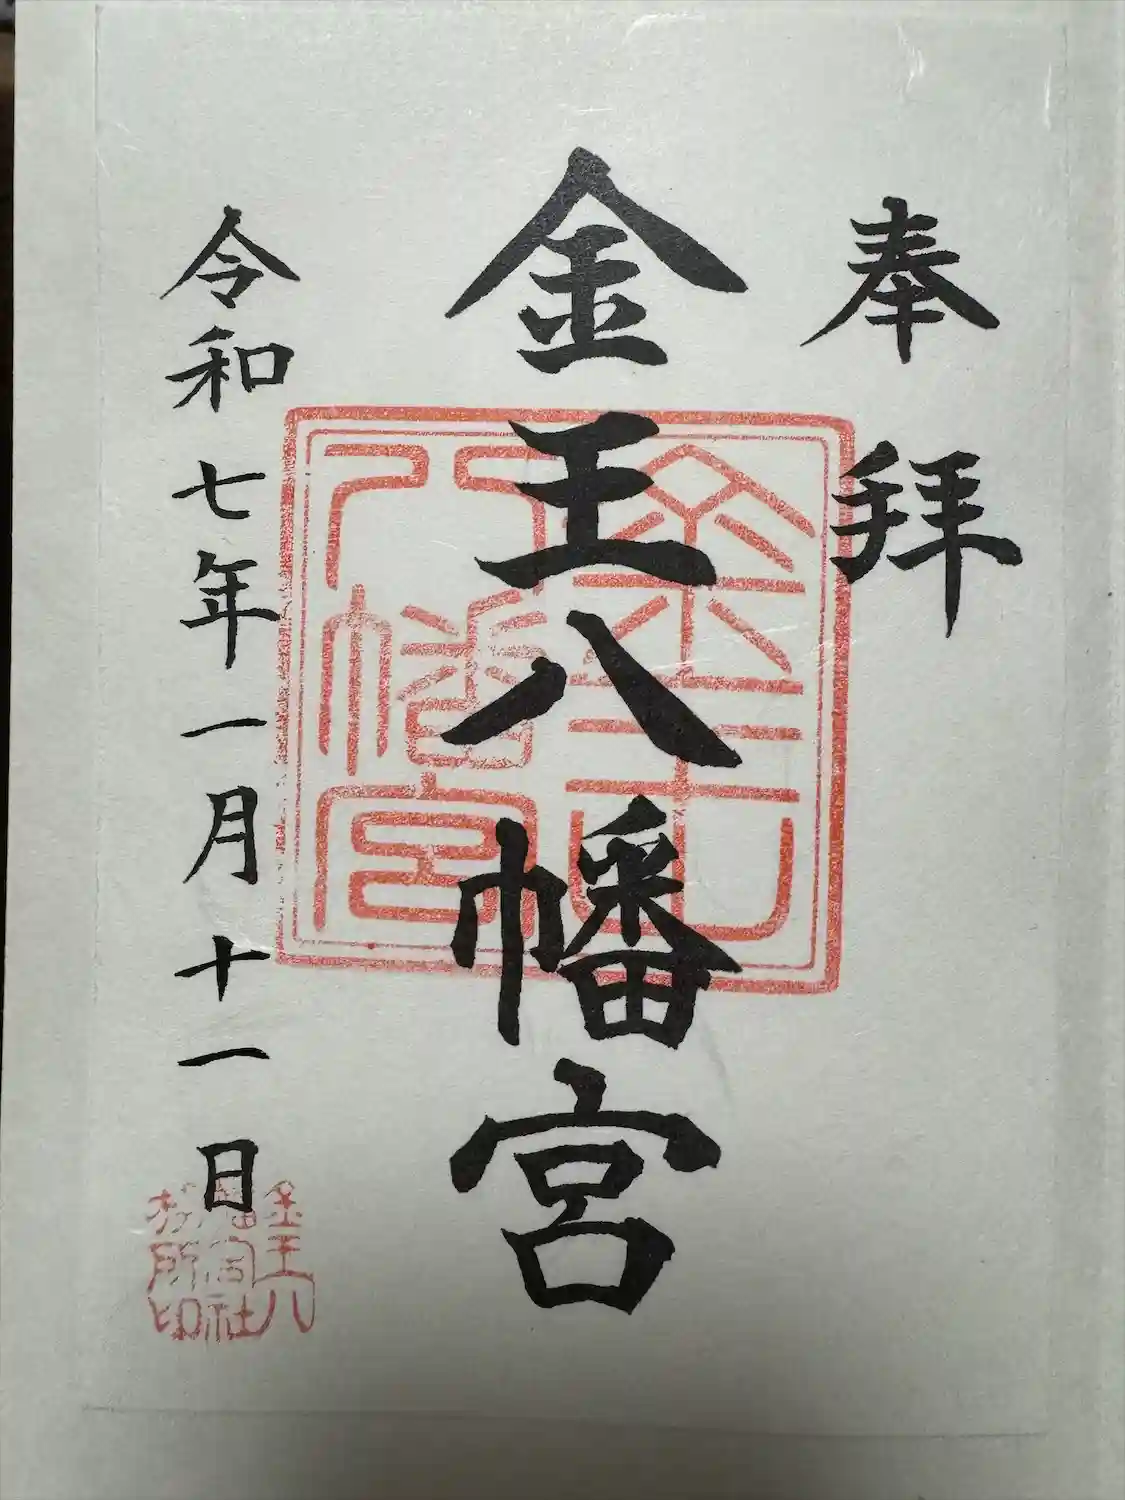 奉拝
金王八幡宮
令和七年一月十一日
金王八
幡宮社
務所印